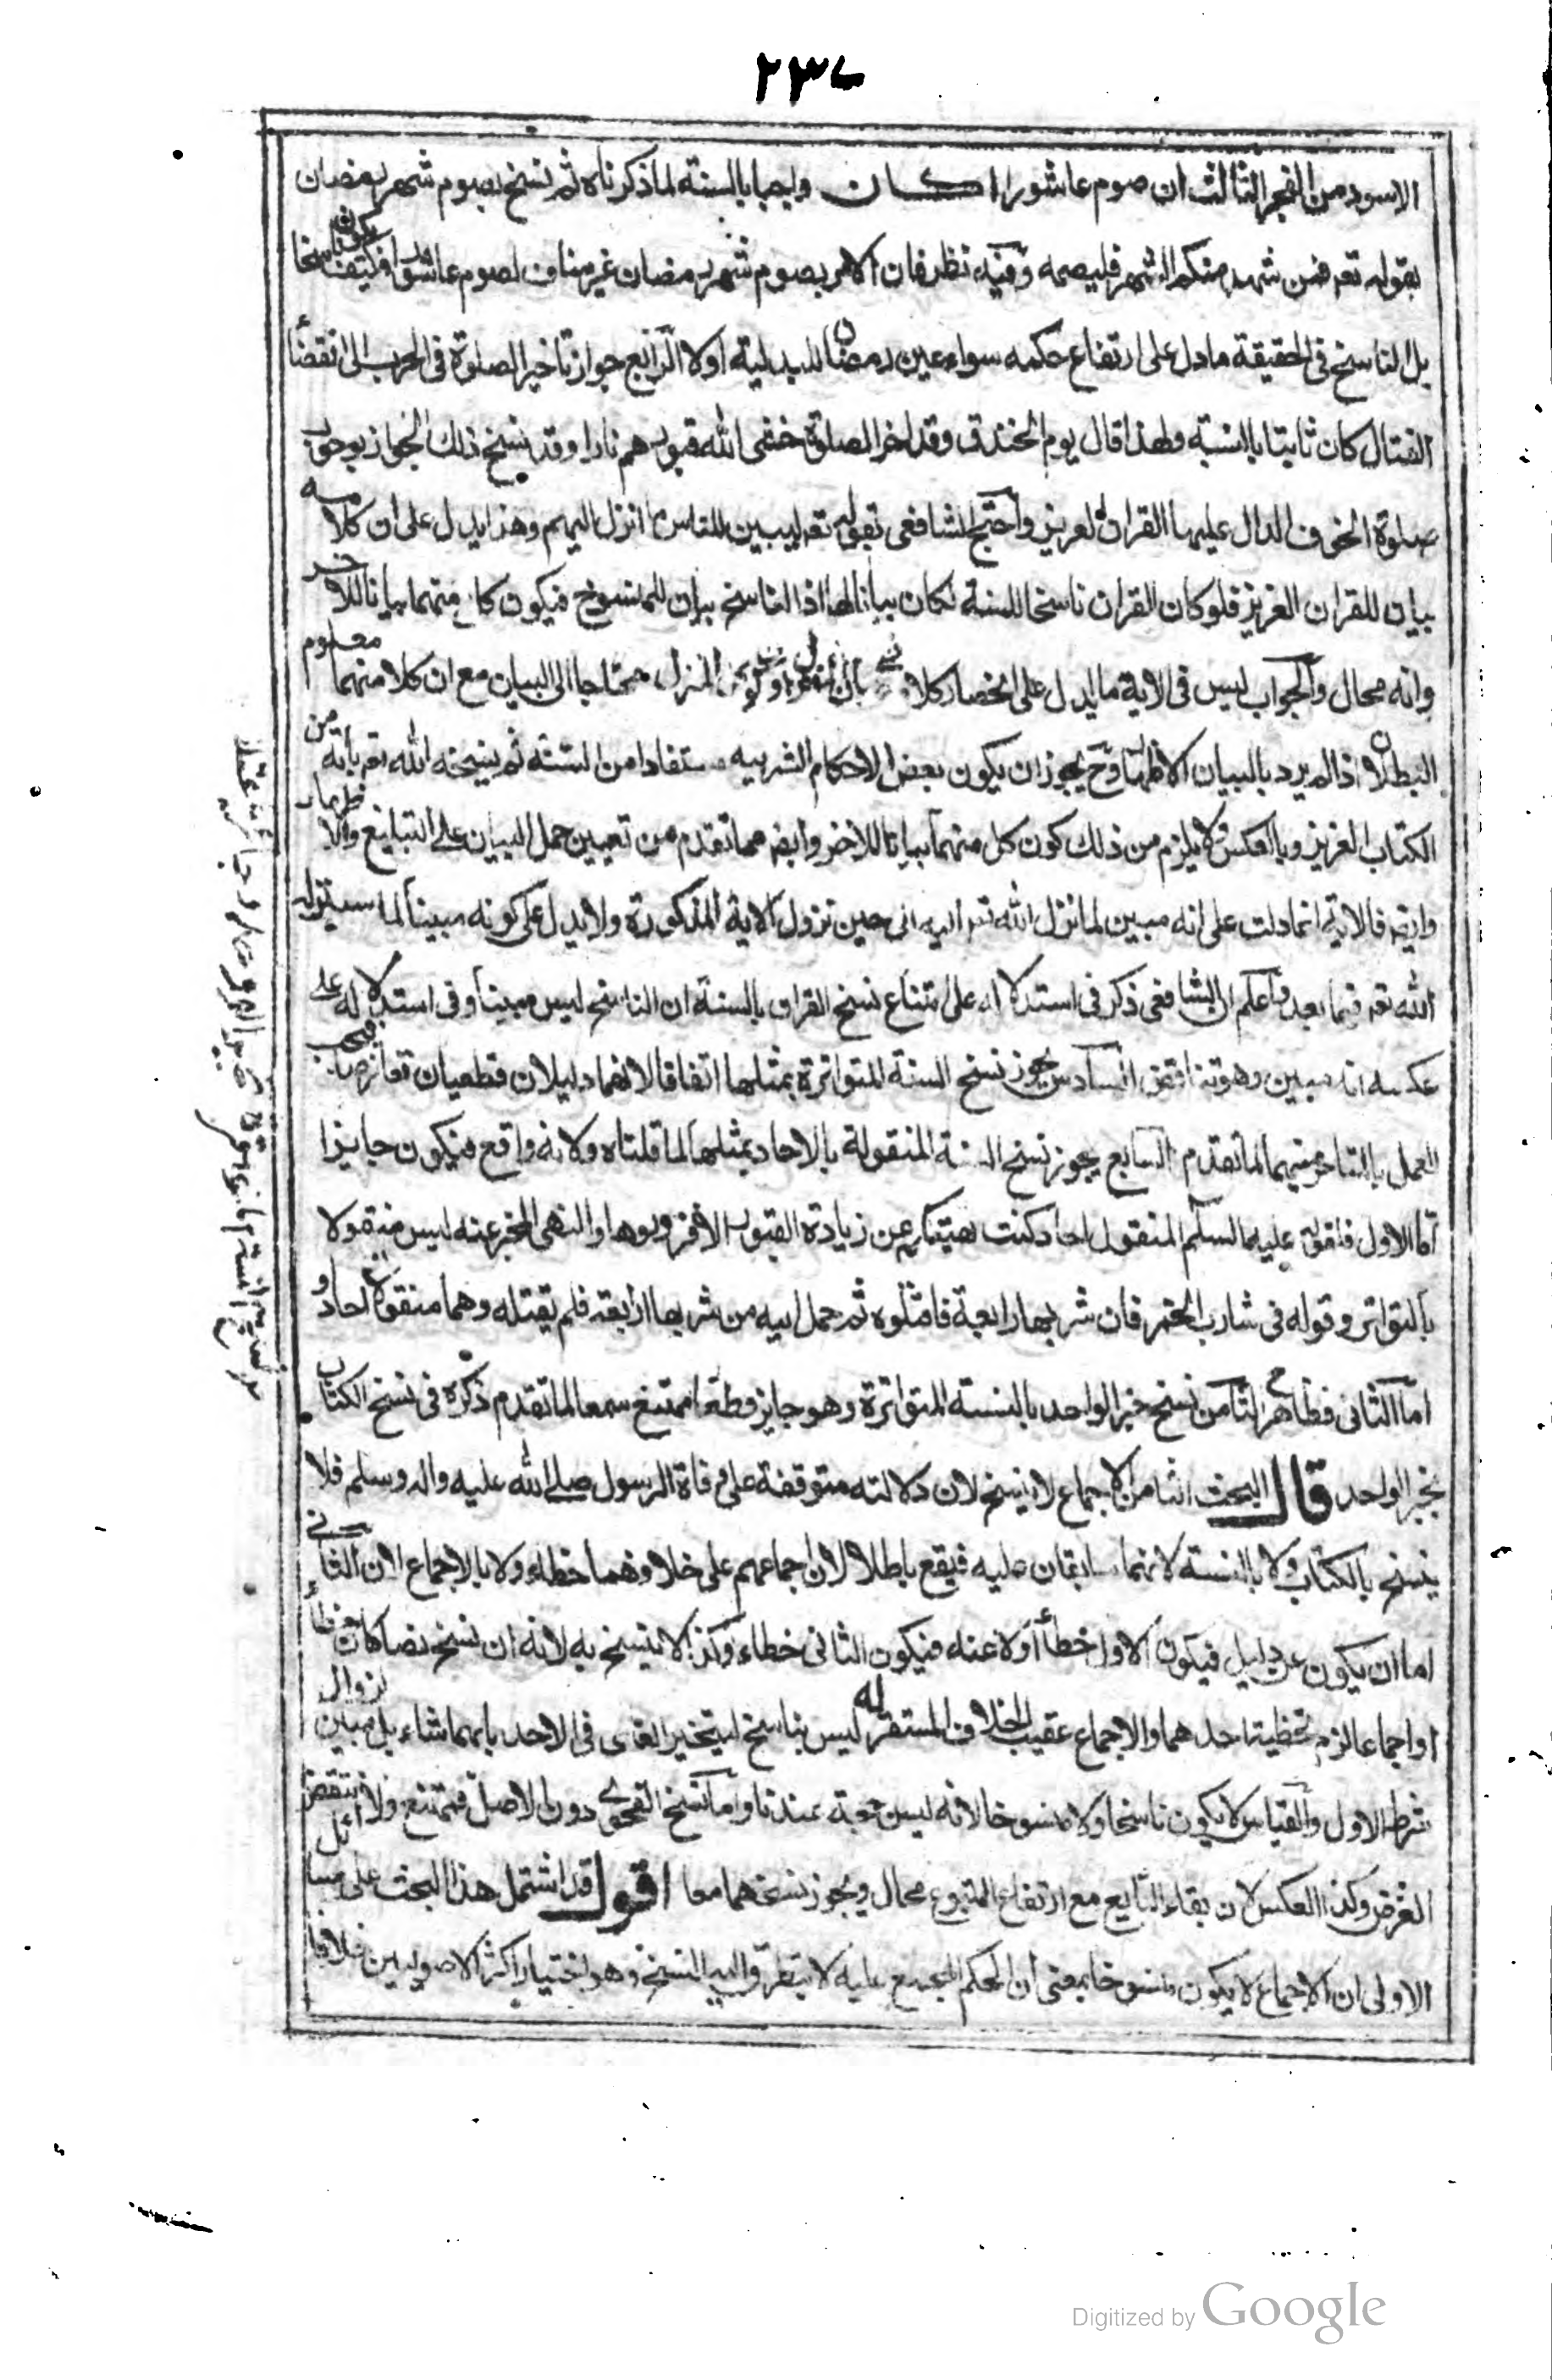 ٢٣٧
الاسود من الفجر الثالث ان صوم عاشورا كان واجبا بالسنة لما ذكرناه ثم نسخ بصوم شهر رمضان
بقوله تعه فمن شهد منكم الشهر فليصمه وفيه نظر فان الامر بصوم شهر رمضان غير مناف لصوم عاشورا فكيف يكون ناسخا
بل الناسخ فى الحقيقة ما دل على ارتفاع حكمه سواء عين رمضان للبدلية اولا الرابع جواز تاخير الصلوة فى الحرب الى انقضاء
القتال كان ثابتا بالسنة ولهذا قال يوم الخندق وقد اخر الصلوة حشى الله قبورهم نارا وقد نسخ ذلك الجواز بوجوب
صلوة الخوف الدال عليها القران العزيز واحتج الشافعى بقوله تعه ليبين للناس ما انزل اليهم وهذا يدل على ان كلامه
بيان للقران العزيز فلو كان القران ناسخا للسنة لكان بيانا لها اذ الناسخ بيان للمنسوخ فيكون كل منهما بيانا للاخر
وانه محال والجواب ليس فى الاية ما يدل على انحصار كلامه المنزل محتاجا الى البيان مع ان كلا منهما معلوم
البطلان اذ المراد بالبيان الاظهار وح يجوز ان يكون بعض الاحكام الشرعيه مستفادا من السنة ثم ينسخه الله تعه بآية من
الكتاب العزيز وبالعكس ولا يلزم من ذلك كون كل منهما بيانا للاخر وايضه مما تقدم من تعيين حمل البيان على التبليغ والاظهار
وايضه فالاية انما دلت على انه مبين لما نزل الله تعه اليه الى حين نزول الاية المذكورة ولا يدل على كونه مبينا لما سينزله
الله تعه فيما بعد واعلم ان الشافعى ذكر فى استدلاله على امتناع نسخ القران بالسنة ان الناسخ ليس مبينا وفى استدلاله على
عكسه انه مبين وهو تناقض السادس يجوز نسخ السنة المتواترة بمثلها اتفاقا لانهما دليلان قطعيان تعارضا فيجب
العمل بالمتاخر منهما لما تقدم السابع يجوز نسخ السنة المنقولة بالاحاد بمثلها لما قلناه ولانه واقع فيكون جايزا
اما الاول فلقوله عليه السلم المنقول احاد كنت نهيتكم عن زيادة القبور الا فزوروها والنهى المخبر عنه ليس منقولا
بالتواتر وقوله فى شارب الخمر فان شربها رابعة فاقتلوه ثم حمل اليه من شربها الرابعة فلم يقتله وهما منقولان احاد و
اما الثانى فظاهر الثامن نسخ خبر الواحد بالسنة المتواترة وهو جايز قطعا ممتنع سمعا لما تقدم ذكره فى نسخ الكتاب
بخبر الواحد قال البحث الثامن الاجماع لا ينسخ لان دلالته متوقفة على وفاة الرسول صلى الله عليه واله وسلم فلا
ينسخ بالكتاب ولا بالسنة لانهما سابقان عليه فيقع باطلا لان اجماعهم على خلافهما خطاء ولا بالاجماع لان الثانى
اما ان يكون عن دليل فيكون الاول خطأ اولا عنه فيكون الثانى خطاء وكذا لا ينسخ به لانه ان نسخ نصا كان خطأ
او اجماعا لزم تخطية احدهما والاجماع عقيب الخلاف المستقر ليس بناسخ له لتخيير العامى فى الاخذ بايهما شاء بل مبين لزوال
شرط الاول والقياس لا يكون ناسخا ولا منسوخا لانه ليس حجة عندنا واما نسخ الفحوى دون الاصل فممتنع ولا ينتقض
الغرض وكذا العكس لان بقاء التابع مع ارتفاع المتبوع محال ويجوز نسخهما معا اقول قد اشتمل هذا البحث على مسائل
الاولى ان الاجماع لا يكون منسوخا بمعنى ان الحكم المجمع عليه لا يتطرق اليه النسخ وهو اختيار اكثر الاصوليين خلافا
Digitized by Google